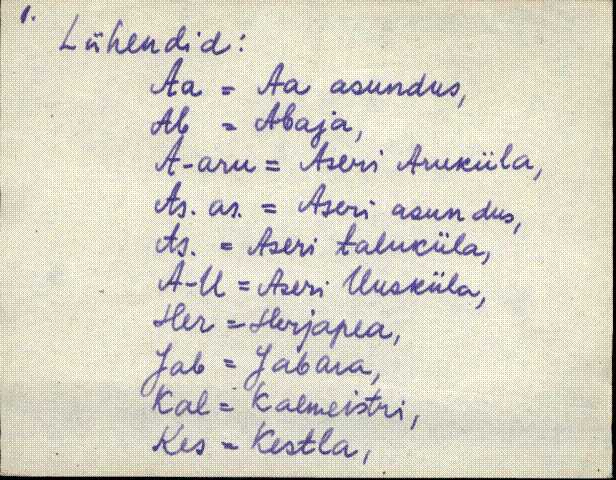 1.
Lühendid:
Aa = Aa asundus,
Ab = Abaja,
A-aru = Aseri Aruküla,
As. as. = Aseri asundus,
As. = Aseri taluküla,
A-U = Aseri Uusküla,
Her = Herjapea,
Jab = Jabara,
Kal = Kalmeistri,
Kes = Kestla,